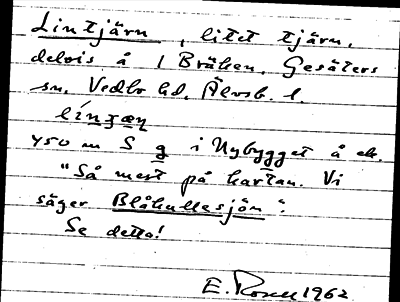 Lintjärn, litet tjärn,
delvis å / Bräken, Gesäters
sn, Vedbo hd, Älvsb. l.
450 m S g i Nybygget å ek.
"Så mest på kartan. Vi
säger Blåkullesjön".
Se detta!
E. Rosell 1962